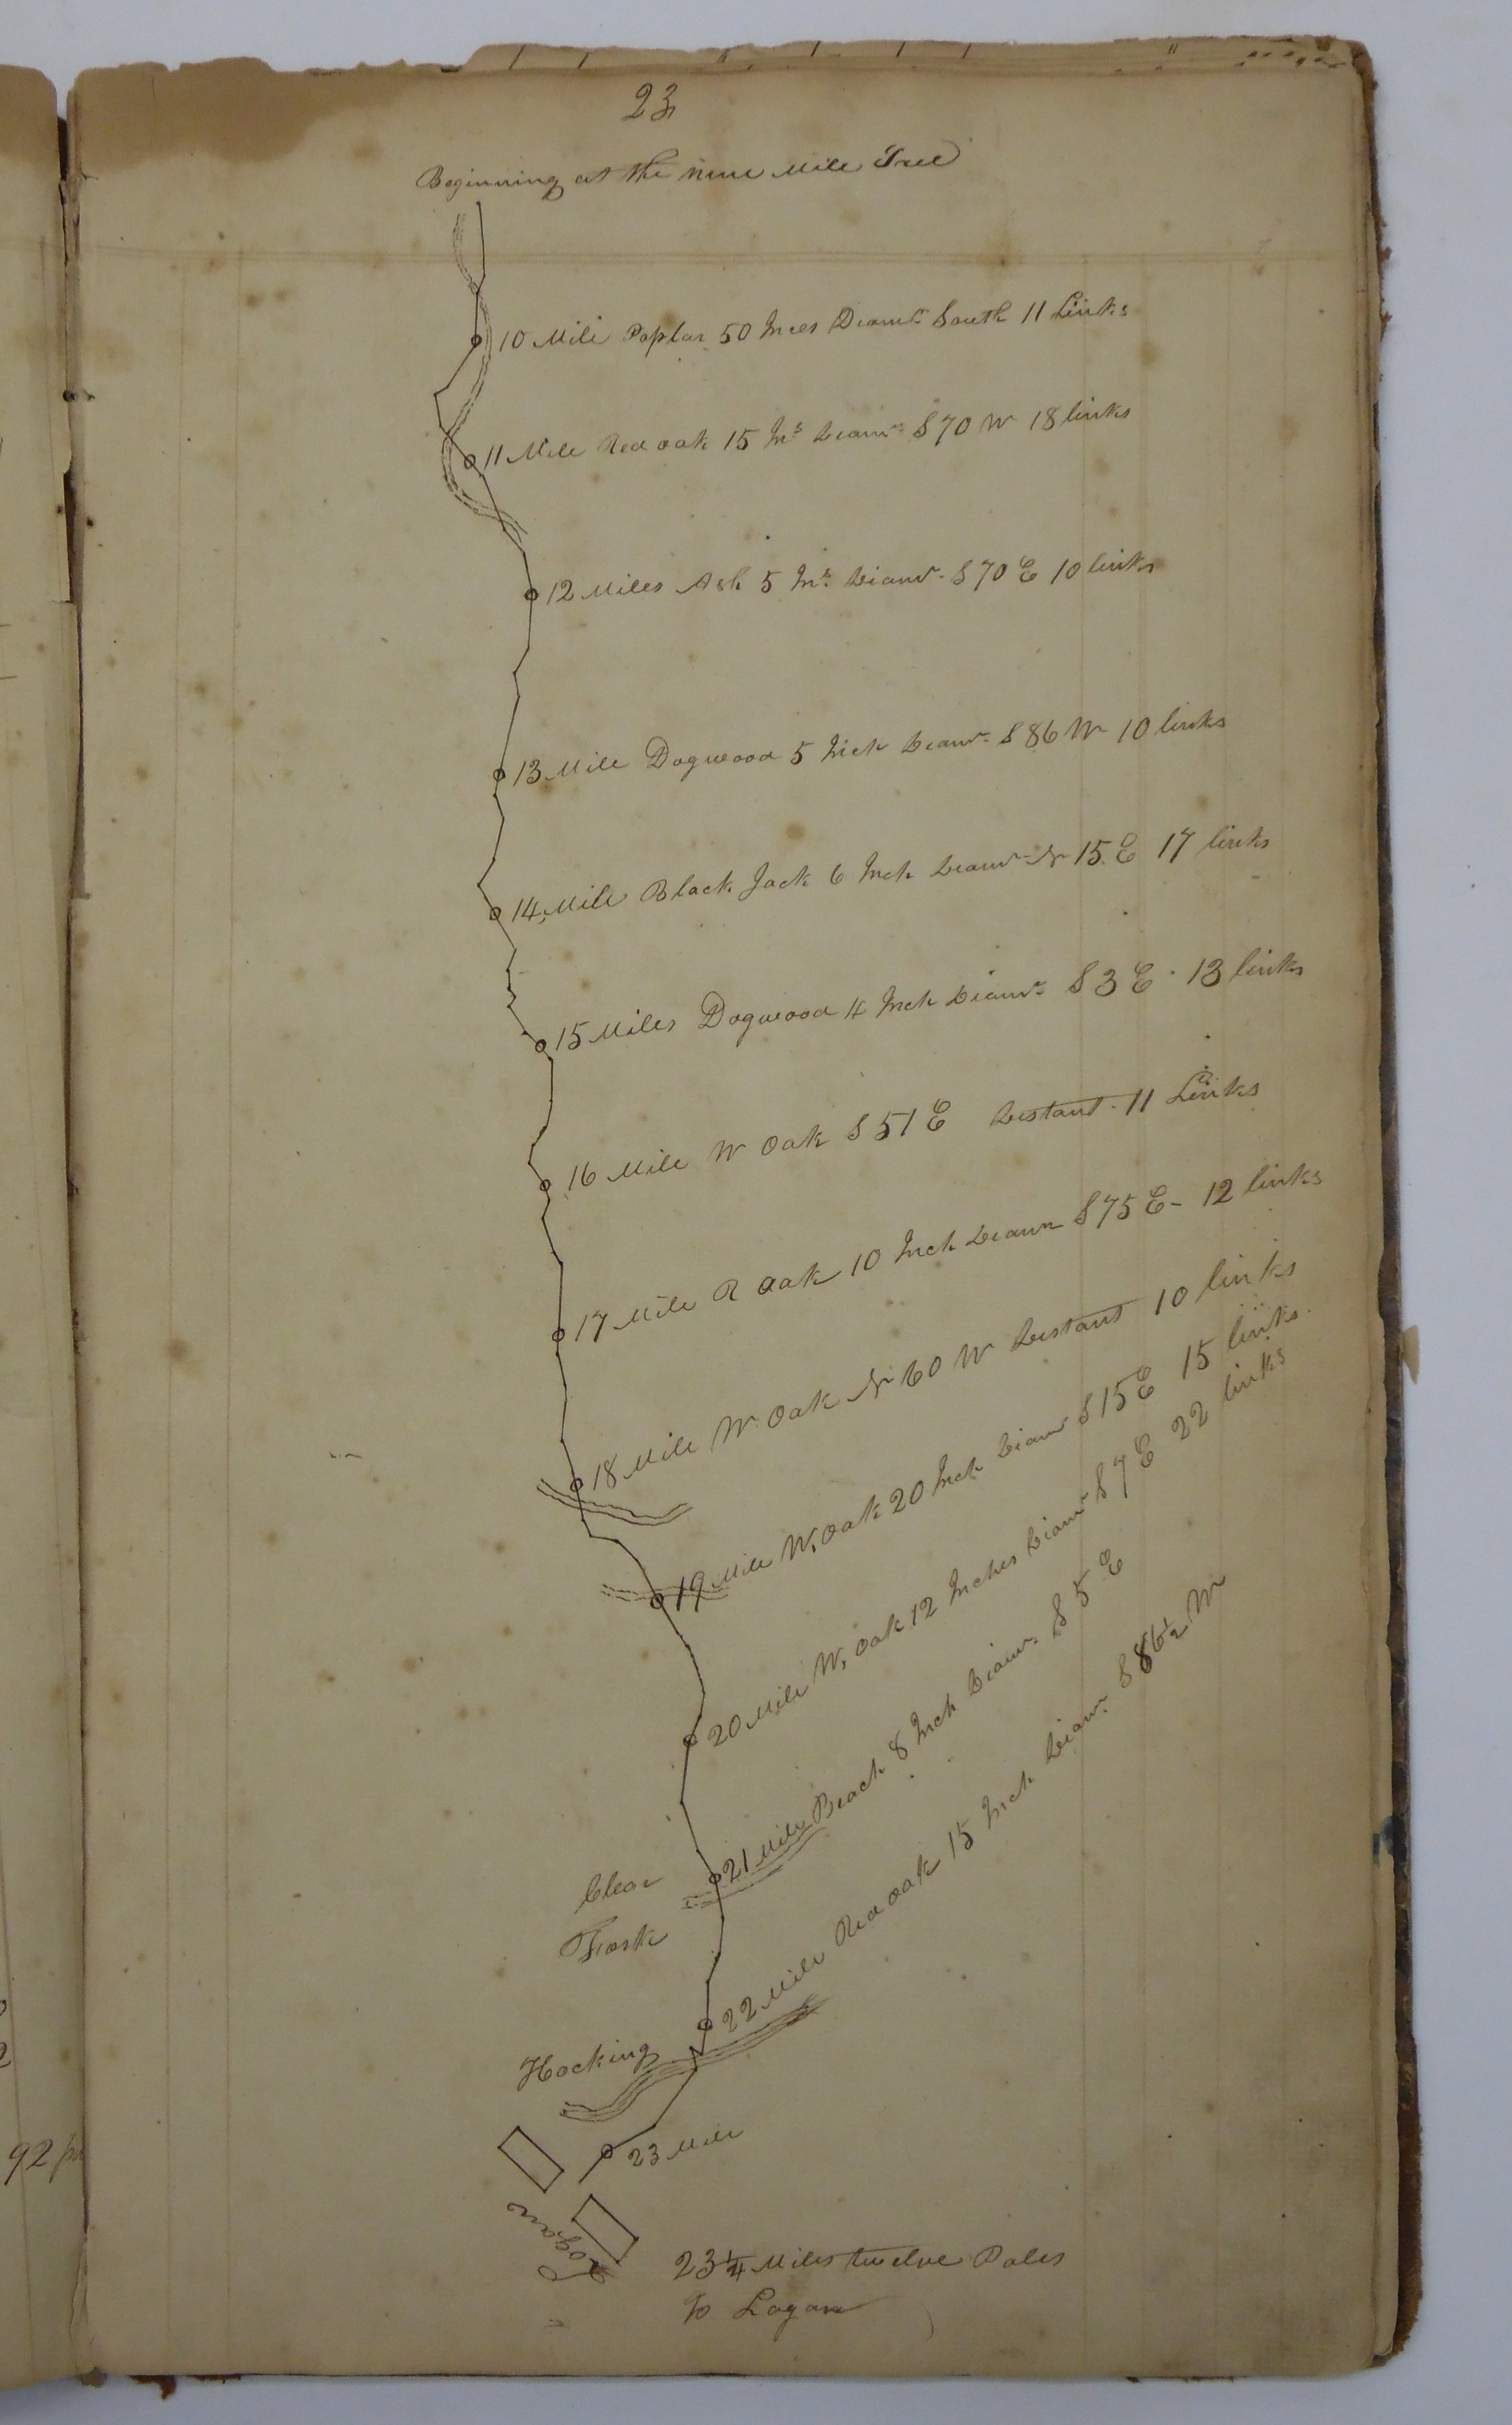 23
Beginning at the nine Mile Tree
10 Mile Poplar 50 Inces Diamr South 11 Links
11 Mile Red oak 15 Ins Diamr S 70 W 18 links
12 Miles Ash 5 Ins Diamr S 70 E 10 links
13 Mile Dogwood 5 Inch Diamr S 86 W 10 links
14 Mile Black Jack 6 Inch Diamr N 15 E 17 links
15 Miles Dogwood 4 Inch Diamr S 3 E 13 links
16 Mile W Oak S 51 E Distant 11 Links
17 Mile R Oak 10 Inch Diamr S 75 E - 12 links
18 Mile W. Oak N 60 W Distant 10 links
19 Mile W, Oak 20 Inch Diamr S 15 E 15 links
20 Mile W, Oak 12 Inches Diamr S 7 E 22 links
21 Mile Beach 8 Inch Diamr S 5 E
Clear
Fork
22 Mile Red oak 15 Inch Diamr S 86½ W
Hocking
23 Mile
Logan
23¼ Miles twelve Poles
to Logan
92